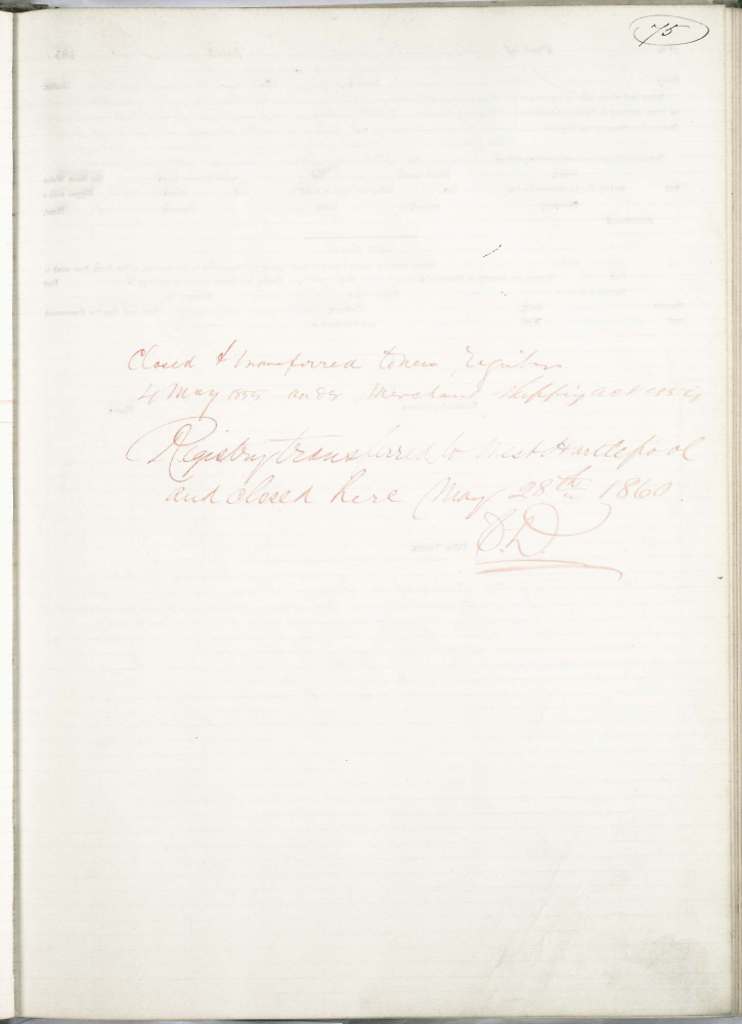 75
Closed & transferred to new Register
4 May 1855 under Merchant Shipping Act 1854
Registry transferred to West Hartlepool
and closed here May 28th 1860.